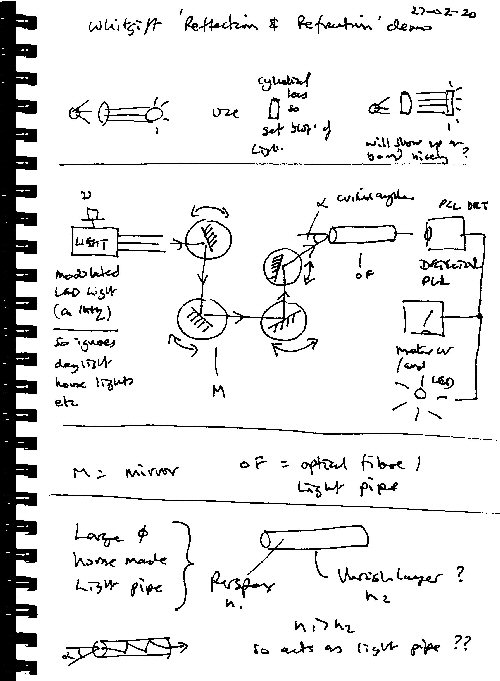 27-02-20
Whitgift 'Reflection & Refraction' demo
use
cylindrical
lens
so
get 'blot' of
light.
will show up on
board nicely?
α critical angle
LIGHT
modulated
LED light
(~ 1kHz)
so ignores
daylight
house lights
etc
M
OF
PLL DET
DETECTOR
PLL
Meter
/and
LED
M = mirror
OF = optical fibre /
light pipe
Large ϕ
home made
light pipe
Perspex
n1
Varnish layer ?
n2
n1 > n2
so acts as light pipe ??
α